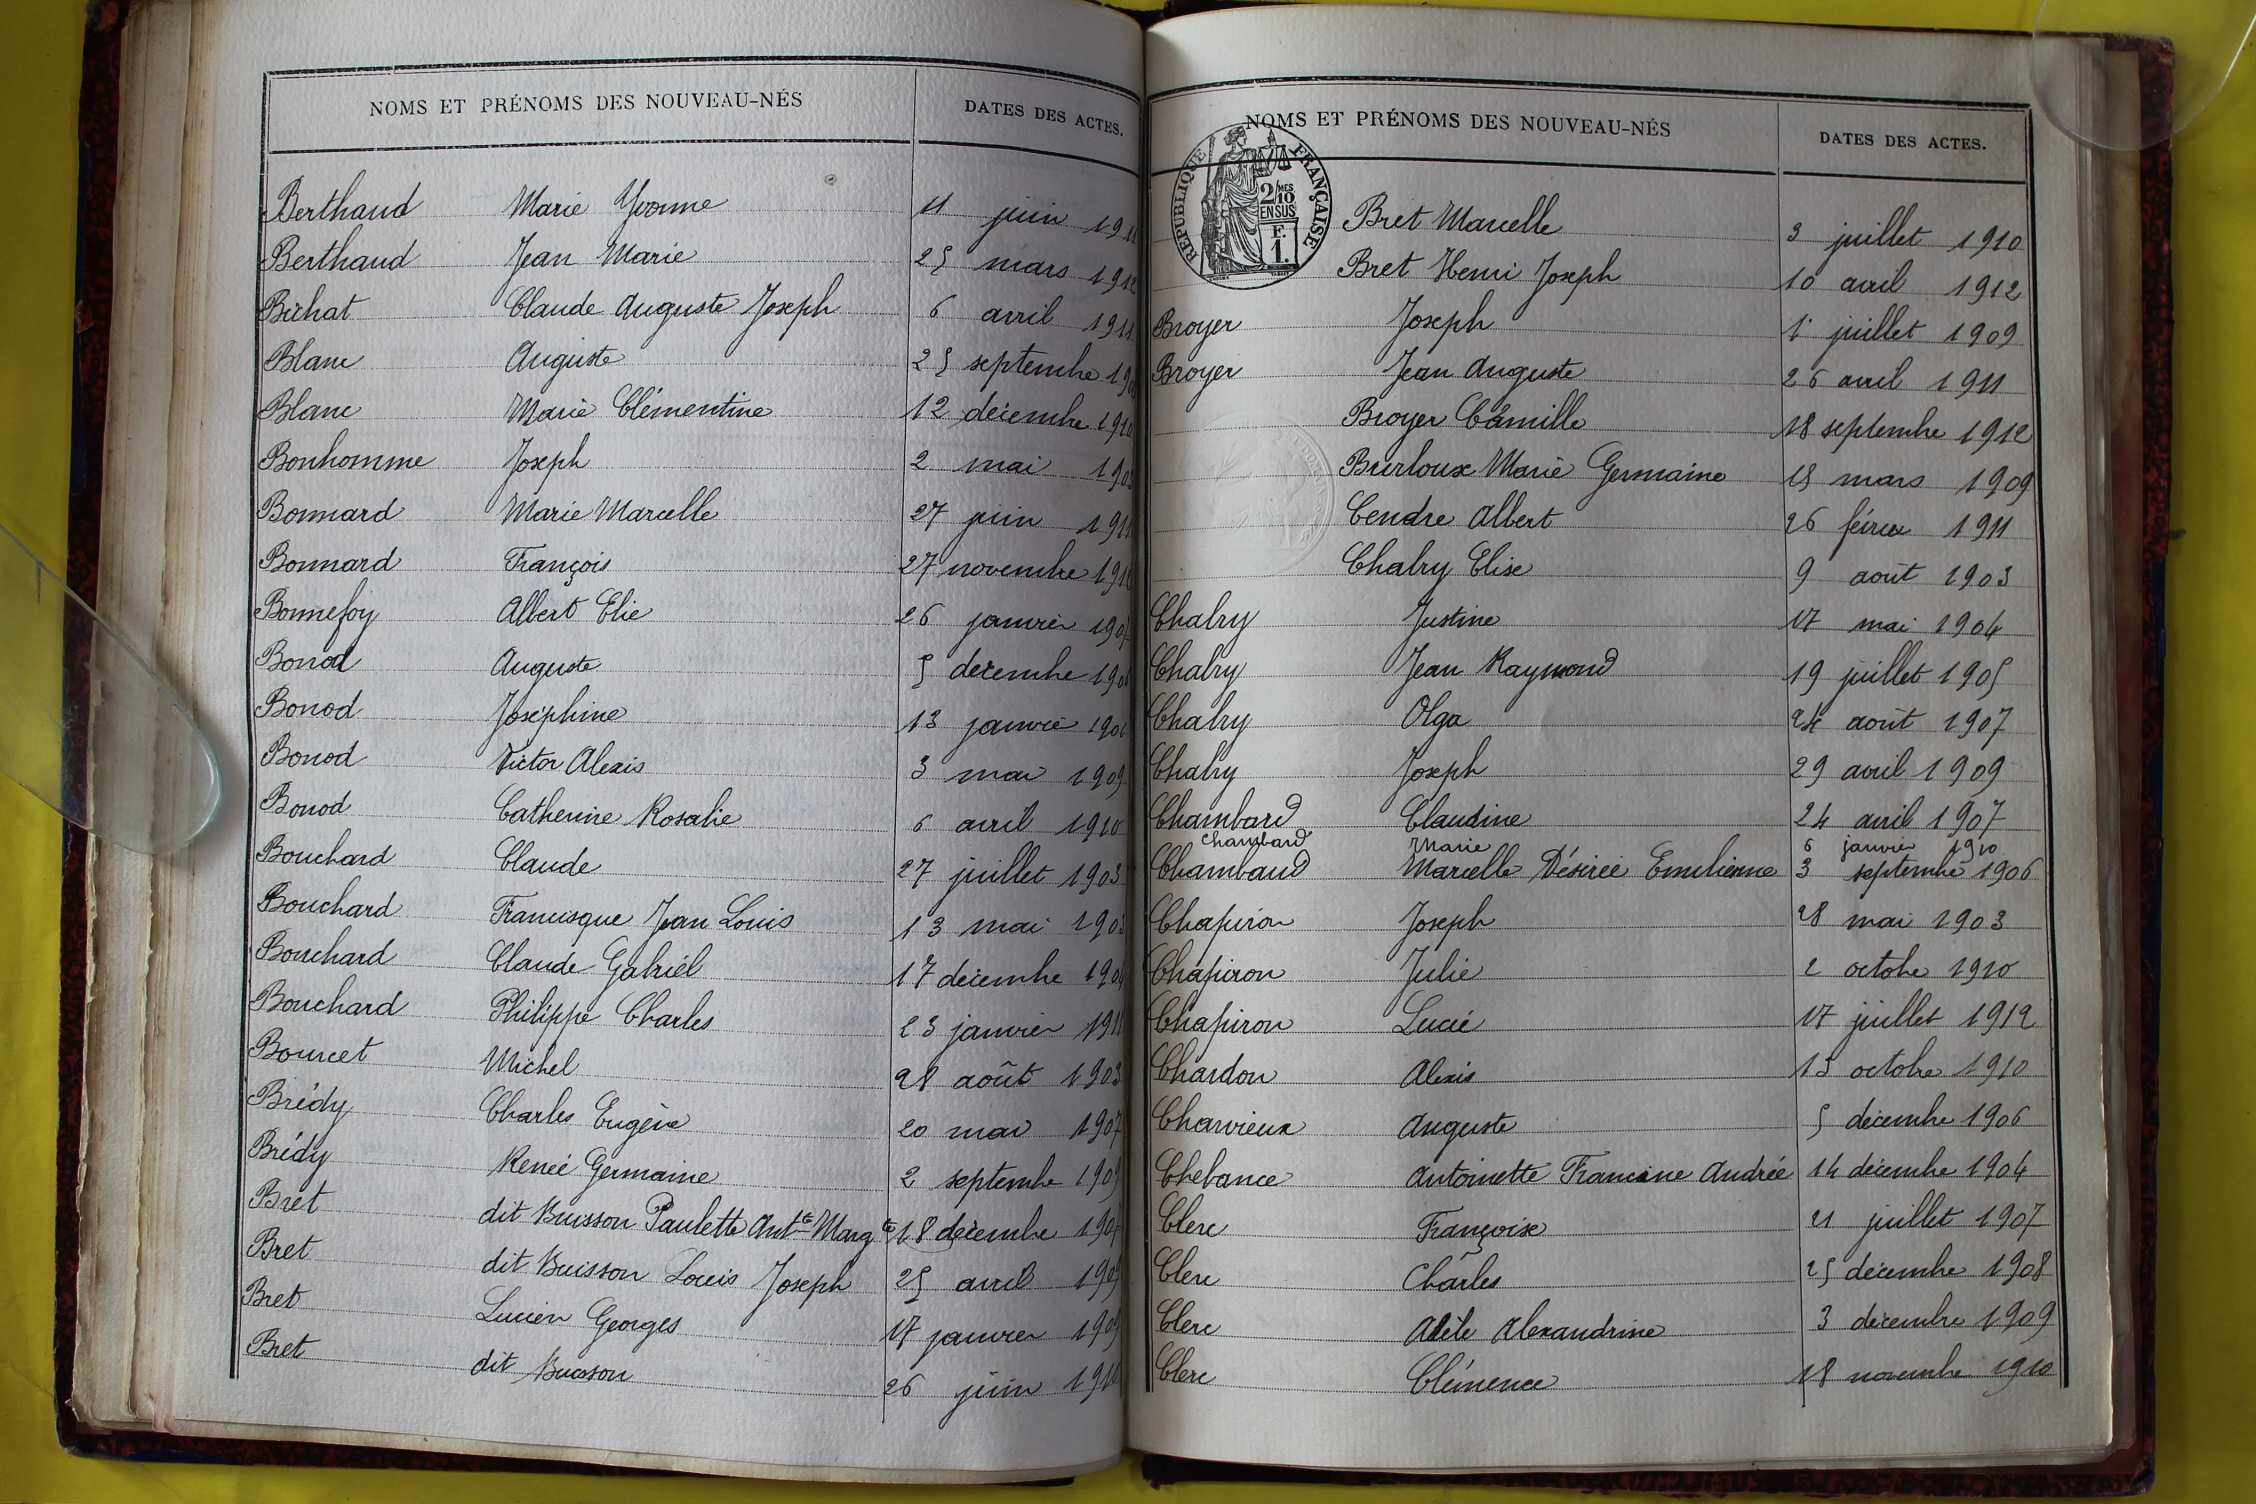 NOMS ET PRÉNOMS DES NOUVEAU-NÉS DATES DES ACTES.
Berthaud Marie Yvonne 11 juin
Berthaud Jean Marie 25 mars 1912
Bichat Claude Auguste Joseph 6 avril 1911
Blanc Auguste 25 septembre
Blanc Marie Clémentine 12 décembre 1910
Bonhomme Joseph 2 mai
Bonnard Marie Marcelle 27 juin
Bonnard François 27 novembre
Bonnefoy Albert Elie 26 janvier 1907
Bonod Auguste 5 décembre
Bonod Joséphine 13 janvier
Bonod Victor Alexis 3 mai 1909
Bonod Catherine Rosalie 6 avril 1910
Bouchard Claude 27 juillet 1903
Bouchard Francisque Jean Louis 13 mai
Bouchard Claude Gabriel 17 décembre
Bouchard Philippe Charles 23 janvier
Bourcet Michel 28 août 1903
Brédy Charles Eugène 20 mai 1907
Brédy Renée Germaine 2 septembre 1909
Bret dit Buisson Paulette Ant.te Marg.te 18 décembre 1907
Bret dit Buisson Louis Joseph 25 avril 1909
Bret Lucien Georges 17 janvier 1909
Bret dit Buisson 26 juin 1910
NOMS ET PRÉNOMS DES NOUVEAU-NÉS DATES DES ACTES.
RÉPUBLIQUE FRANÇAISE
2/10 MES
EN SUS
F.
1.
Bret Marcelle 3 juillet 1910
Bret Henri Joseph 10 avril 1912
Broyer Joseph 1r juillet 1909
Broyer Jean Auguste 26 avril 1911
Broyer Camille 18 septembre 1912
Burloux Marie Germaine 15 mars 1909
Cendre Albert 26 février 1911
Chabry Elise 9 août 1903
Chabry Justine 17 mai 1904
Chabry Jean Raymond 19 juillet 1905
Chabry Olga 24 août 1907
Chabry Joseph 29 avril 1909
Chambard Claudine 24 avril 1907
Chambard Marie 6 janvier 1910
Chambaud Marcelle Désirée Emilienne 3 septembre 1906
Chapiron Joseph 28 mai 1903
Chapiron Julie 2 octobre 1910
Chapiron Lucie 17 juillet 1912
Chardon Alexis 13 octobre 1910
Charvieux Auguste 5 décembre 1906
Chebance Antoinette Francine Andrée 14 décembre 1904
Clerc Françoise 21 juillet 1907
Clerc Charles 25 décembre 1908
Clerc Adèle Alexandrine 3 décembre 1909
Clerc Clémence 18 novembre 1910